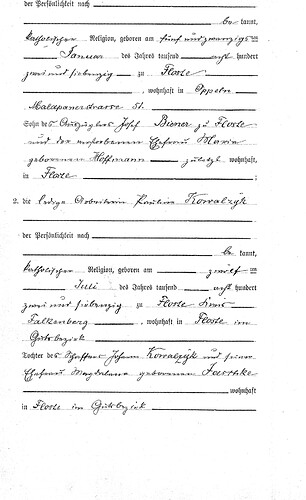 der Persönlichkeit nach
be kannt,
katholischer Religion, geboren am fünf und zwanzigs ten
Januar des Jahres tausend acht hundert
zwei und siebenzig zu Floste
, wohnhaft in Oppeln
Malapanerstrasse 51.
Sohn des Auszüglers Josef Biener zu Floste
und der verstorbenen Ehefrau Maria
geborenen Hoffmann zuletzt wohnhaft,
in Floste ;
2. die ledige Arbeiterin Paulina Kowalzyk
der Persönlichkeit nach
be kannt,
katholischer Religion, geboren am zwölf ten
Juli des Jahres tausend acht hundert
zwei und siebenzig zu Floste Kreis
Falkenberg , wohnhaft in Floste im
Gutsbezirk
Tochter des Schaffer Johann Kowalzyk und seiner
Ehefrau Magdalena geborenen
wohnhaft
in Floste im Gutsbezirk